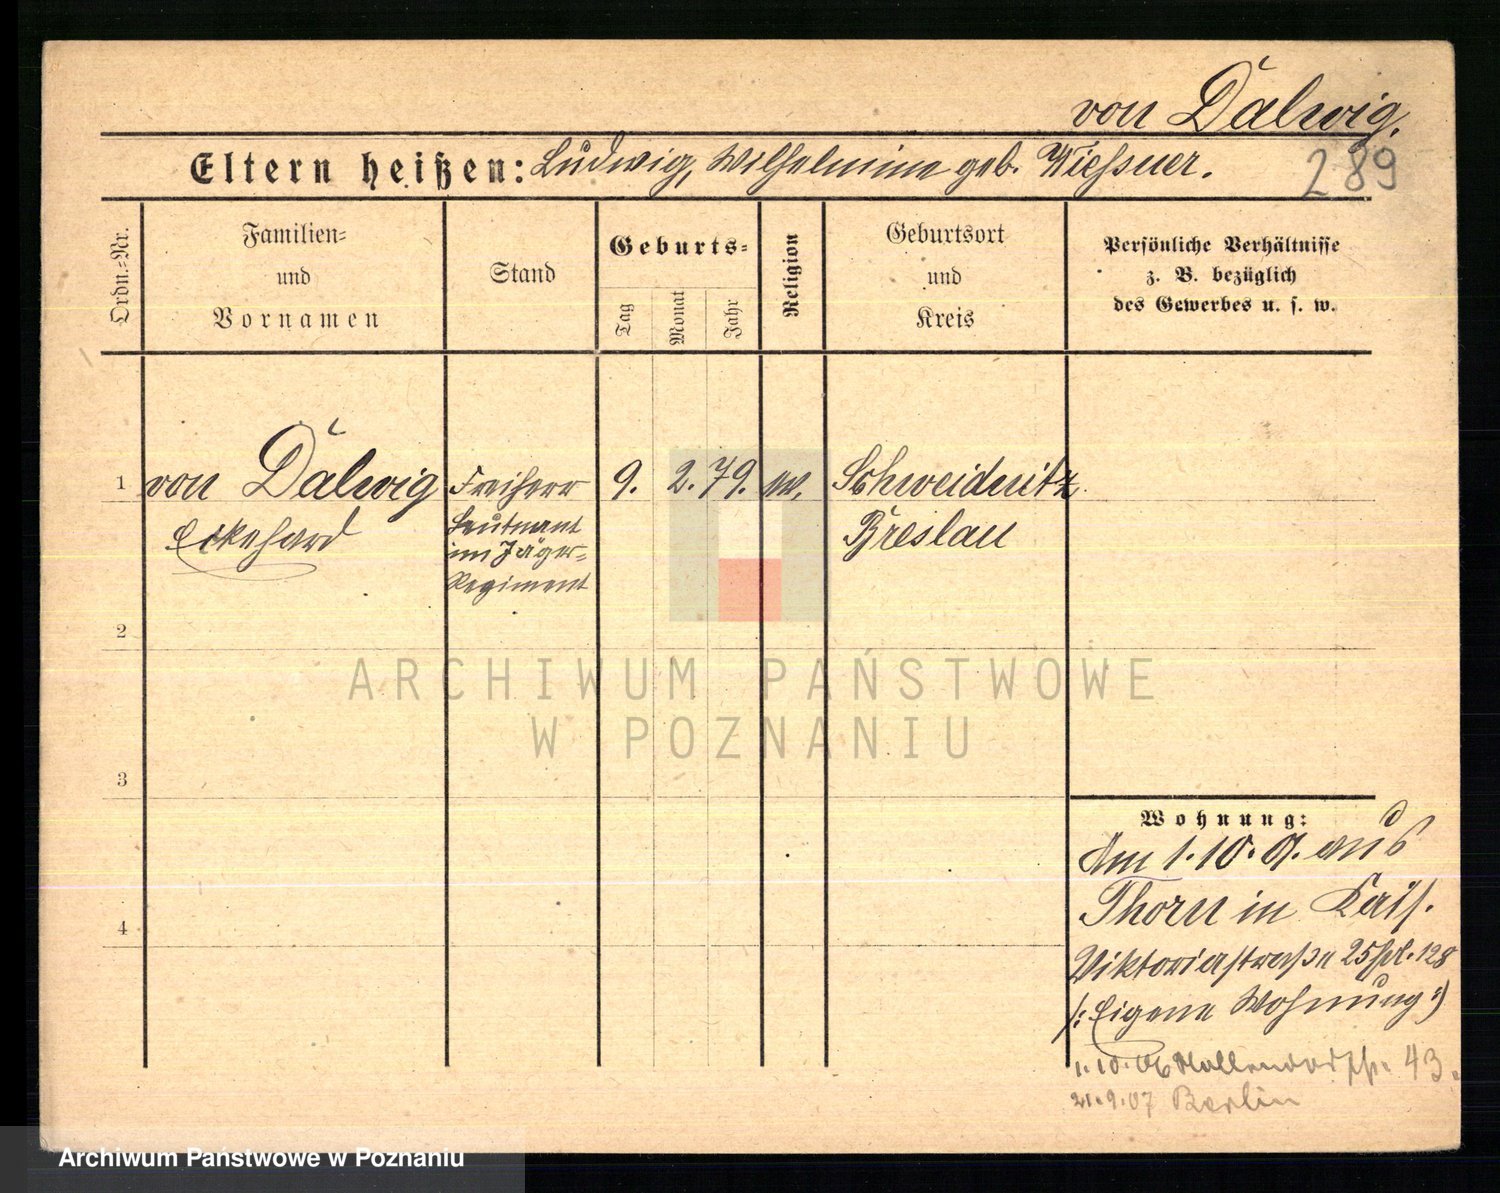 von Dalwig.
Eltern heißen: Ludwig, Wilhelmine geb. Wießner.
289
Ordn.-Nr.
Familien-
und
Vornamen
Stand
Geburts-
Tag
Monat
Jahr
Religion
Geburtsort
und
Kreis
Persönliche Verhältnisse
z. B. bezüglich
des Gewerbes u. s. w.
1
von Dalwig
Eckehard
Freiherr
Leutnant
im Jäger-
Regiment
9. 2. 79.
Schweidnitz
Breslau
2
3
4
ARCHIWUM PAŃSTWOWE
W POZNANIU
Wohnung:
Am 1.10. aus
Thorn in
Viktoriastraße 25
/: Eigene Wohnung :/
1.10.06 43.
21.9.07 Berlin
Archiwum Państwowe w Poznaniu